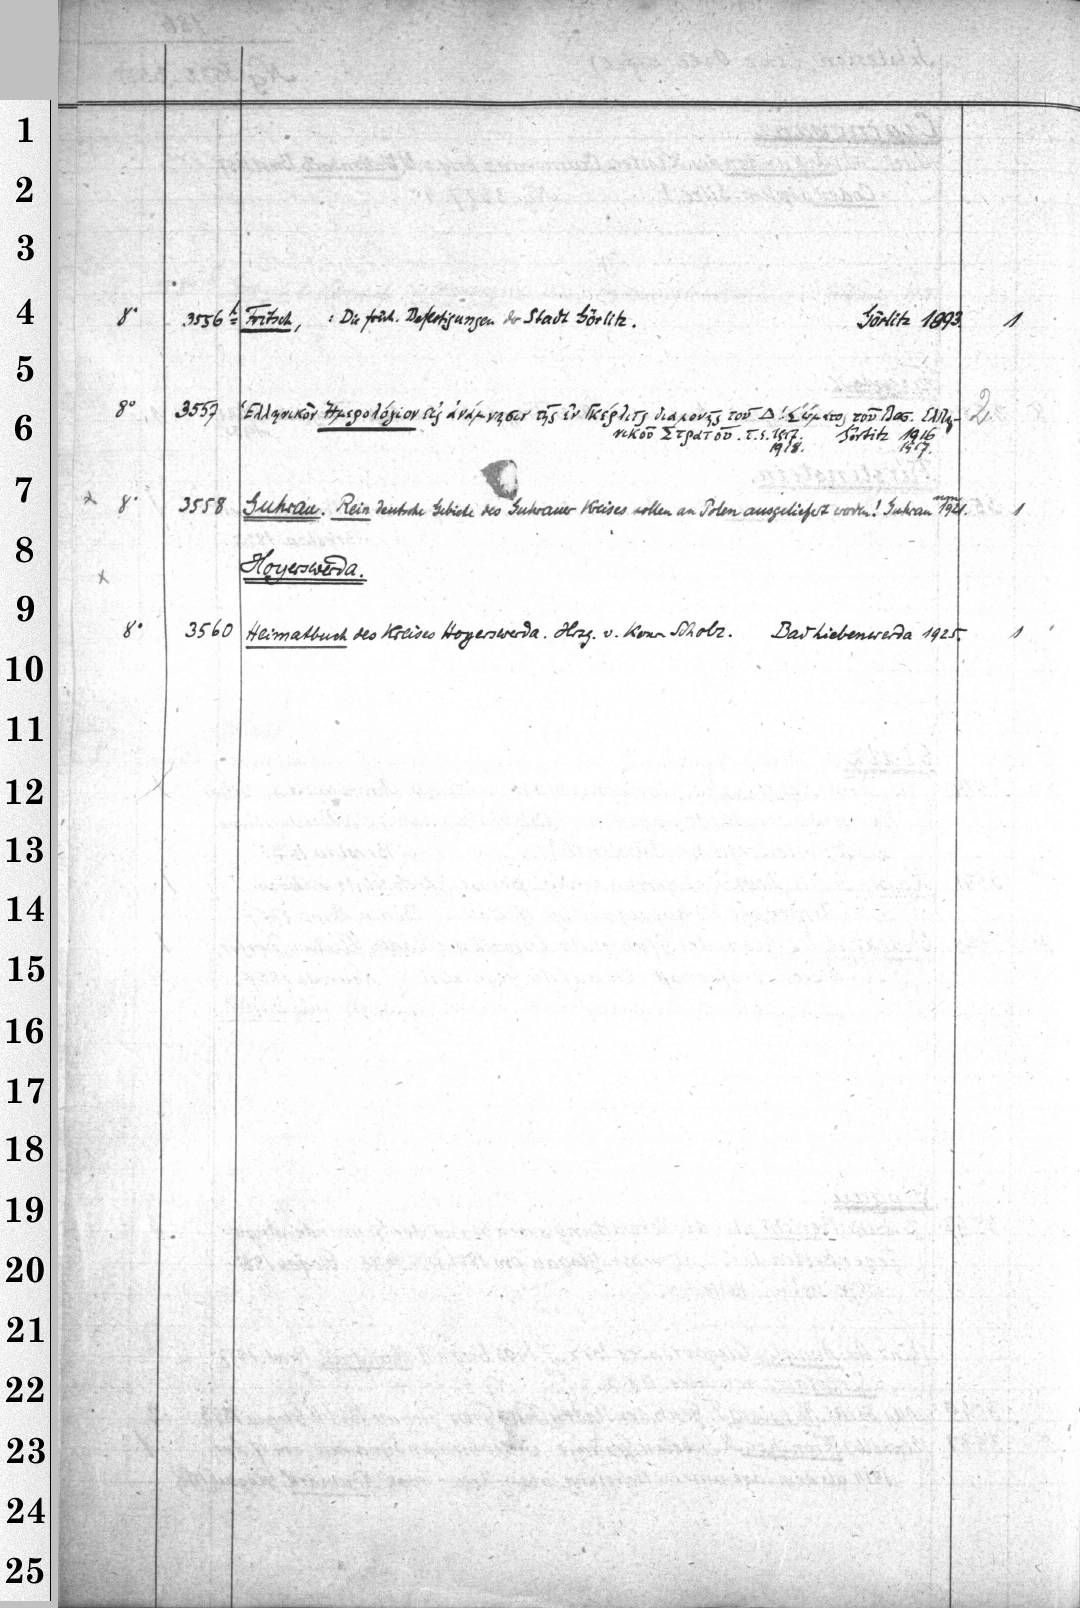 1
2
3
4
8° 3556 Fritsch, : Die früh. Befestigungen der Stadt Görlitz. Görlitz 1893. 1
5
8° 3557 Ἑλληνικὸν Ἡμερολόγιον εἰς ἀνάμνησιν τῆς ἐν Γκέρλιτς διαμονῆς τοῦ Δ! Σώματος τοῦ Βασ. Ἑλλη- 2
6
νικοῦ Στρατοῦ. 1917. Görlitz 1916
1918. 1917.
7
x 8° 3558 Guhrau. Rein deutsche Gebiete des Guhrauer Kreises sollen an Polen ausgeliefert werden! Guhrau 1921. 1
8
Hoyerswerda.
x
9
8° 3560 Heimatbuch des Kreises Hoyerswerda. Hrsg. v. Konr. Scholz. Bad Liebenwerda 1925. 1
10
11
12
13
14
15
16
17
18
19
20
21
22
23
24
25